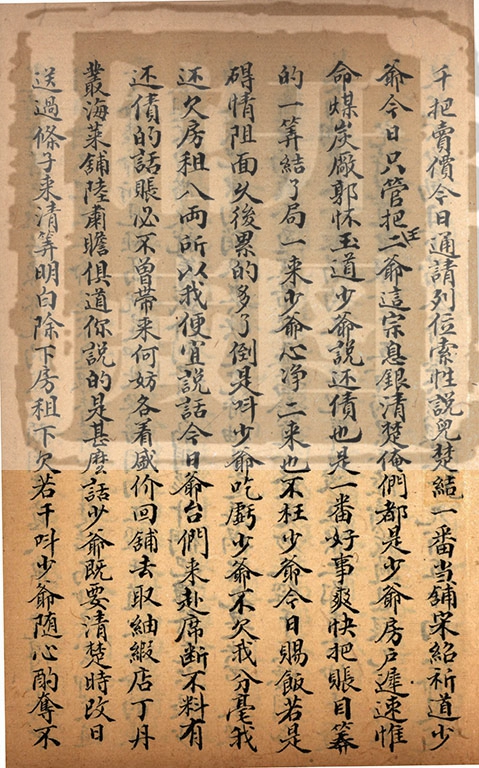 千把賣價今日通請列位索性說兌楚結一番当舖宋紹祈道少
爺今日只管把王二爺這宗息銀清楚俺們都是少爺房戶遲速惟
命煤炭廠郭怀玉道少爺說还債也是一番好事爽快把賬目籌
的一筭結了局一来少爺心净二来也不枉少爺今日賜飯若是
碍情阻面久後累的多了倒是呌少爺吃虧少爺不欠我分毫我
还欠房租八両所以我便宜說話今日爺台們来赴席断不料有
还債的話賬必不曾帶来何妨各着盛价回舖去取紬緞店丁丹
叢海菜舖陸肅瞻俱道你說的是甚麽話少爺既要清楚時改日
送過條子来清筭明白除下房租下欠若干呌少爺随心酌奪不